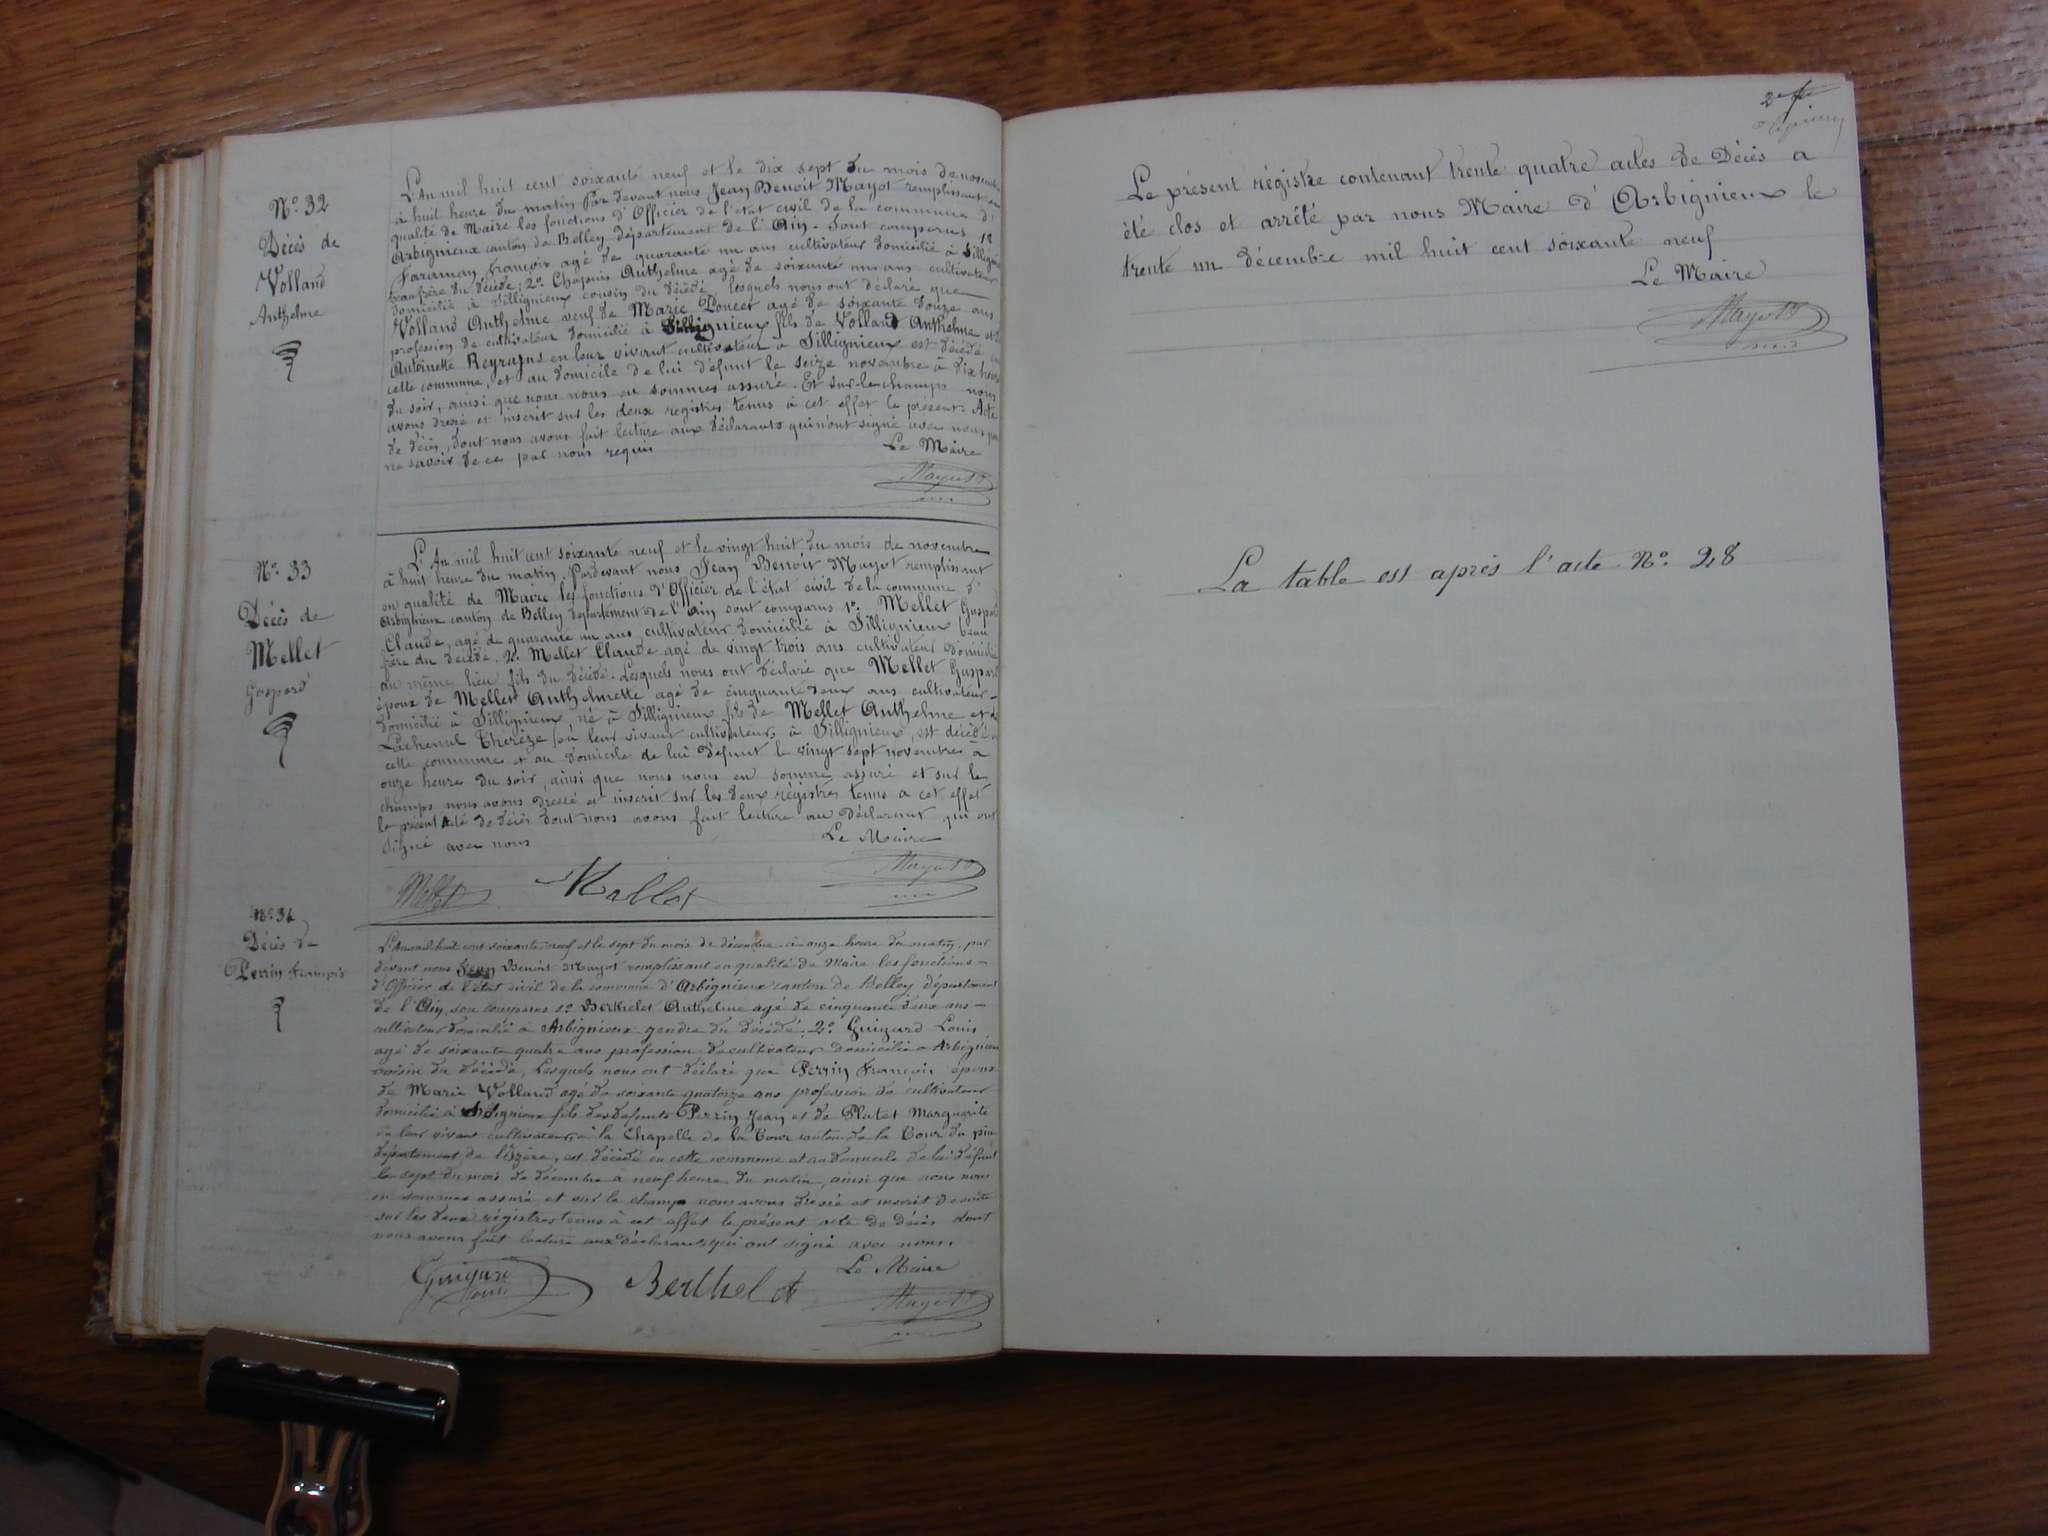 N° 32
Décès de
Volland
Anthelme
L'An mil huit cent soixante neuf et le dix sept du mois de novembre
à huit heure du matin Par devant nous Jean Benoit Mayot remplissant en
qualité de Maire les fonctions d'Officier de l'état civil de la commune d'
Arbignieux canton de Belley département de l'Ain. Sont comparus 1°
Faraman François agé de quarante un ans cultivateur domicilié à Sillignieux
beaufrère du décédé; 2° Chapuis Anthelme agé de soixante un ans cultivateur
domicilié à Sillignieux cousin du décédé, lesquels nous ont déclaré que
Volland Anthelme veuf de Marie Poncet agé de soixante douze ans
profession de cultivateur domicilié à Sillignieux fils de Volland Anthelme et de
Antoinette Reyrajus en leur vivant cultivateur à Sillignieux est décédé en
cette commune, et au domicile de lui défunt le seize novembre à dix heure
du soir, ainsi que nous nous en sommes assuré. Et sur-le-champs nous
avons dressé et inscrit sur les deux registres tenus à cet effet le présent Acte
de décès, dont nous avons fait lecture aux déclarants qui n'ont signé avec nous pour
ne savoir de ce par nous requis
Le Maire
Mayot
N° 33
Décès de
Mellet
Gaspard
L'An mil huit cent soixante neuf et le vingt huit du mois de novembre
à huit heure du matin. Pardevant nous Jean Benoit Mayot remplissant
en qualité de Maire les fonctions d'Officier de l'état civil de la commune d'
Arbignieux canton de Belley département de l'Ain sont comparus 1°. Mellet Gaspard
Claude, agé de quarante un ans, cultivateur domicilié à Sillignieux beau
frère du décédé. 2°. Mellet Claude agé de vingt trois ans cultivateur domicilié
au même lieu fils du décédé. Lesquels nous ont déclaré que Mellet Gaspard
époux de Mellet Anthelmette agé de cinquante deux ans cultivateur
domicilié à Sillignieux, né à Sillignieux fils de Mellet Anthelme et de
Lachenal Therèze en leur vivant cultivateurs à Sillignieux, est décédé en
cette commune et au domicile de lui défunt le vingt sept novembre à
onze heure du soir, ainsi que nous nous en somme assuré et sur le
champs nous avons dressé et inscrit sur les deux régistres tenus a cet effet
le présent Acte de décès dont nous avons fait lecture au Déclarant qui ont
signé avec nous
Le Maire
Mellet Mellet Mayot
N° 34
Décès de
Perrin François
L'An mil huit cent soixante-neuf et le sept du mois de décembre à onze heure du matin, par
devant nous Jean Benoit Mayot remplissant en qualité de Maire les fonctions
d'Officier de l'état civil de la commune d'Arbignieux canton de Belley département
de l'Ain, son comparus 1° Berthelet Anthelme agé de cinquante deux ans
cultivateur domicilié à Arbignieux gendre du décédé. 2° Guigard Louis
agé de soixante quatre ans profession de cultivateur domicilié à Arbignieux
voisin du décédé, Lesquels nous ont déclaré que Perrin François époux
de Marie Volland agé de soixante quatorze ans profession de cultivateur
domicilié à Arbignieux fils des défunts Perrin Jean et de Platet Marguerite
en leur vivant cultivateurs à la Chapelle de la Tour canton de la Tour du pin
département de l'Izère, est décédé en cette commune et au domicile de lui défunt
le sept du mois de décembre à neuf heure du matin, ainsi que nous nous
en sommes assuré et sur le champ nous avons dressé et inscrit de suite
sur les deux régistres tenus à cet effet le présent acte de décès dont
nous avons fait lecture aux déclarants qui ont signé avec nous.
Le Maire
Guigard Louis Berthelet Mayot
Le présent régistre contenant trente quatre actes de Décès a
été clos et arrêté par nous Maire d'Arbignieux le
trente un décembre mil huit cent soixante neuf
Le Maire
Mayot
La table est après l'acte N° 28